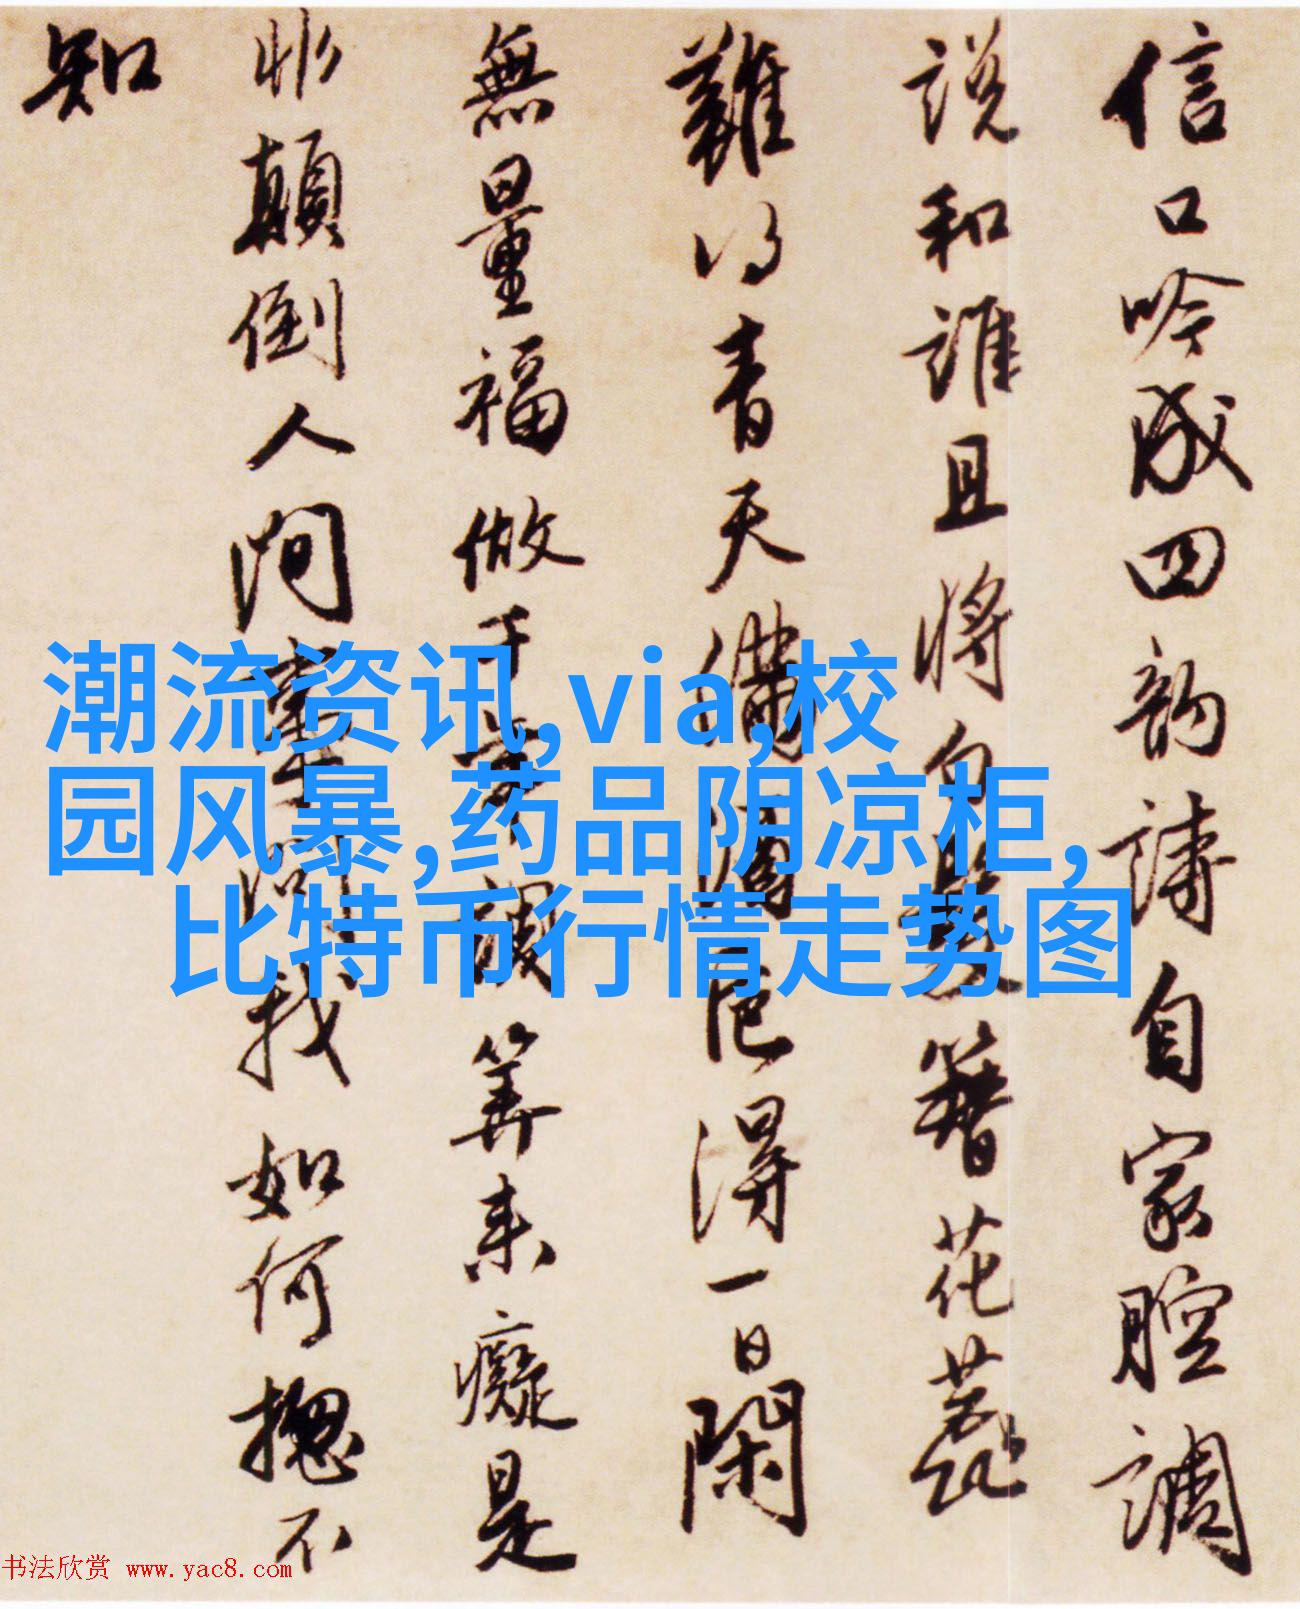 信口吟成四韵诗自家腔调
说和谁且将白发簪花蕊
难将青天满酒卮得一日闲
无量福做千年调算来痴是
非颠倒人间事问我如何总不
知
潮流资讯,via,校
园风暴,药品阴凉柜,
比特币行情走势图
书法欣赏 www.yac8.com